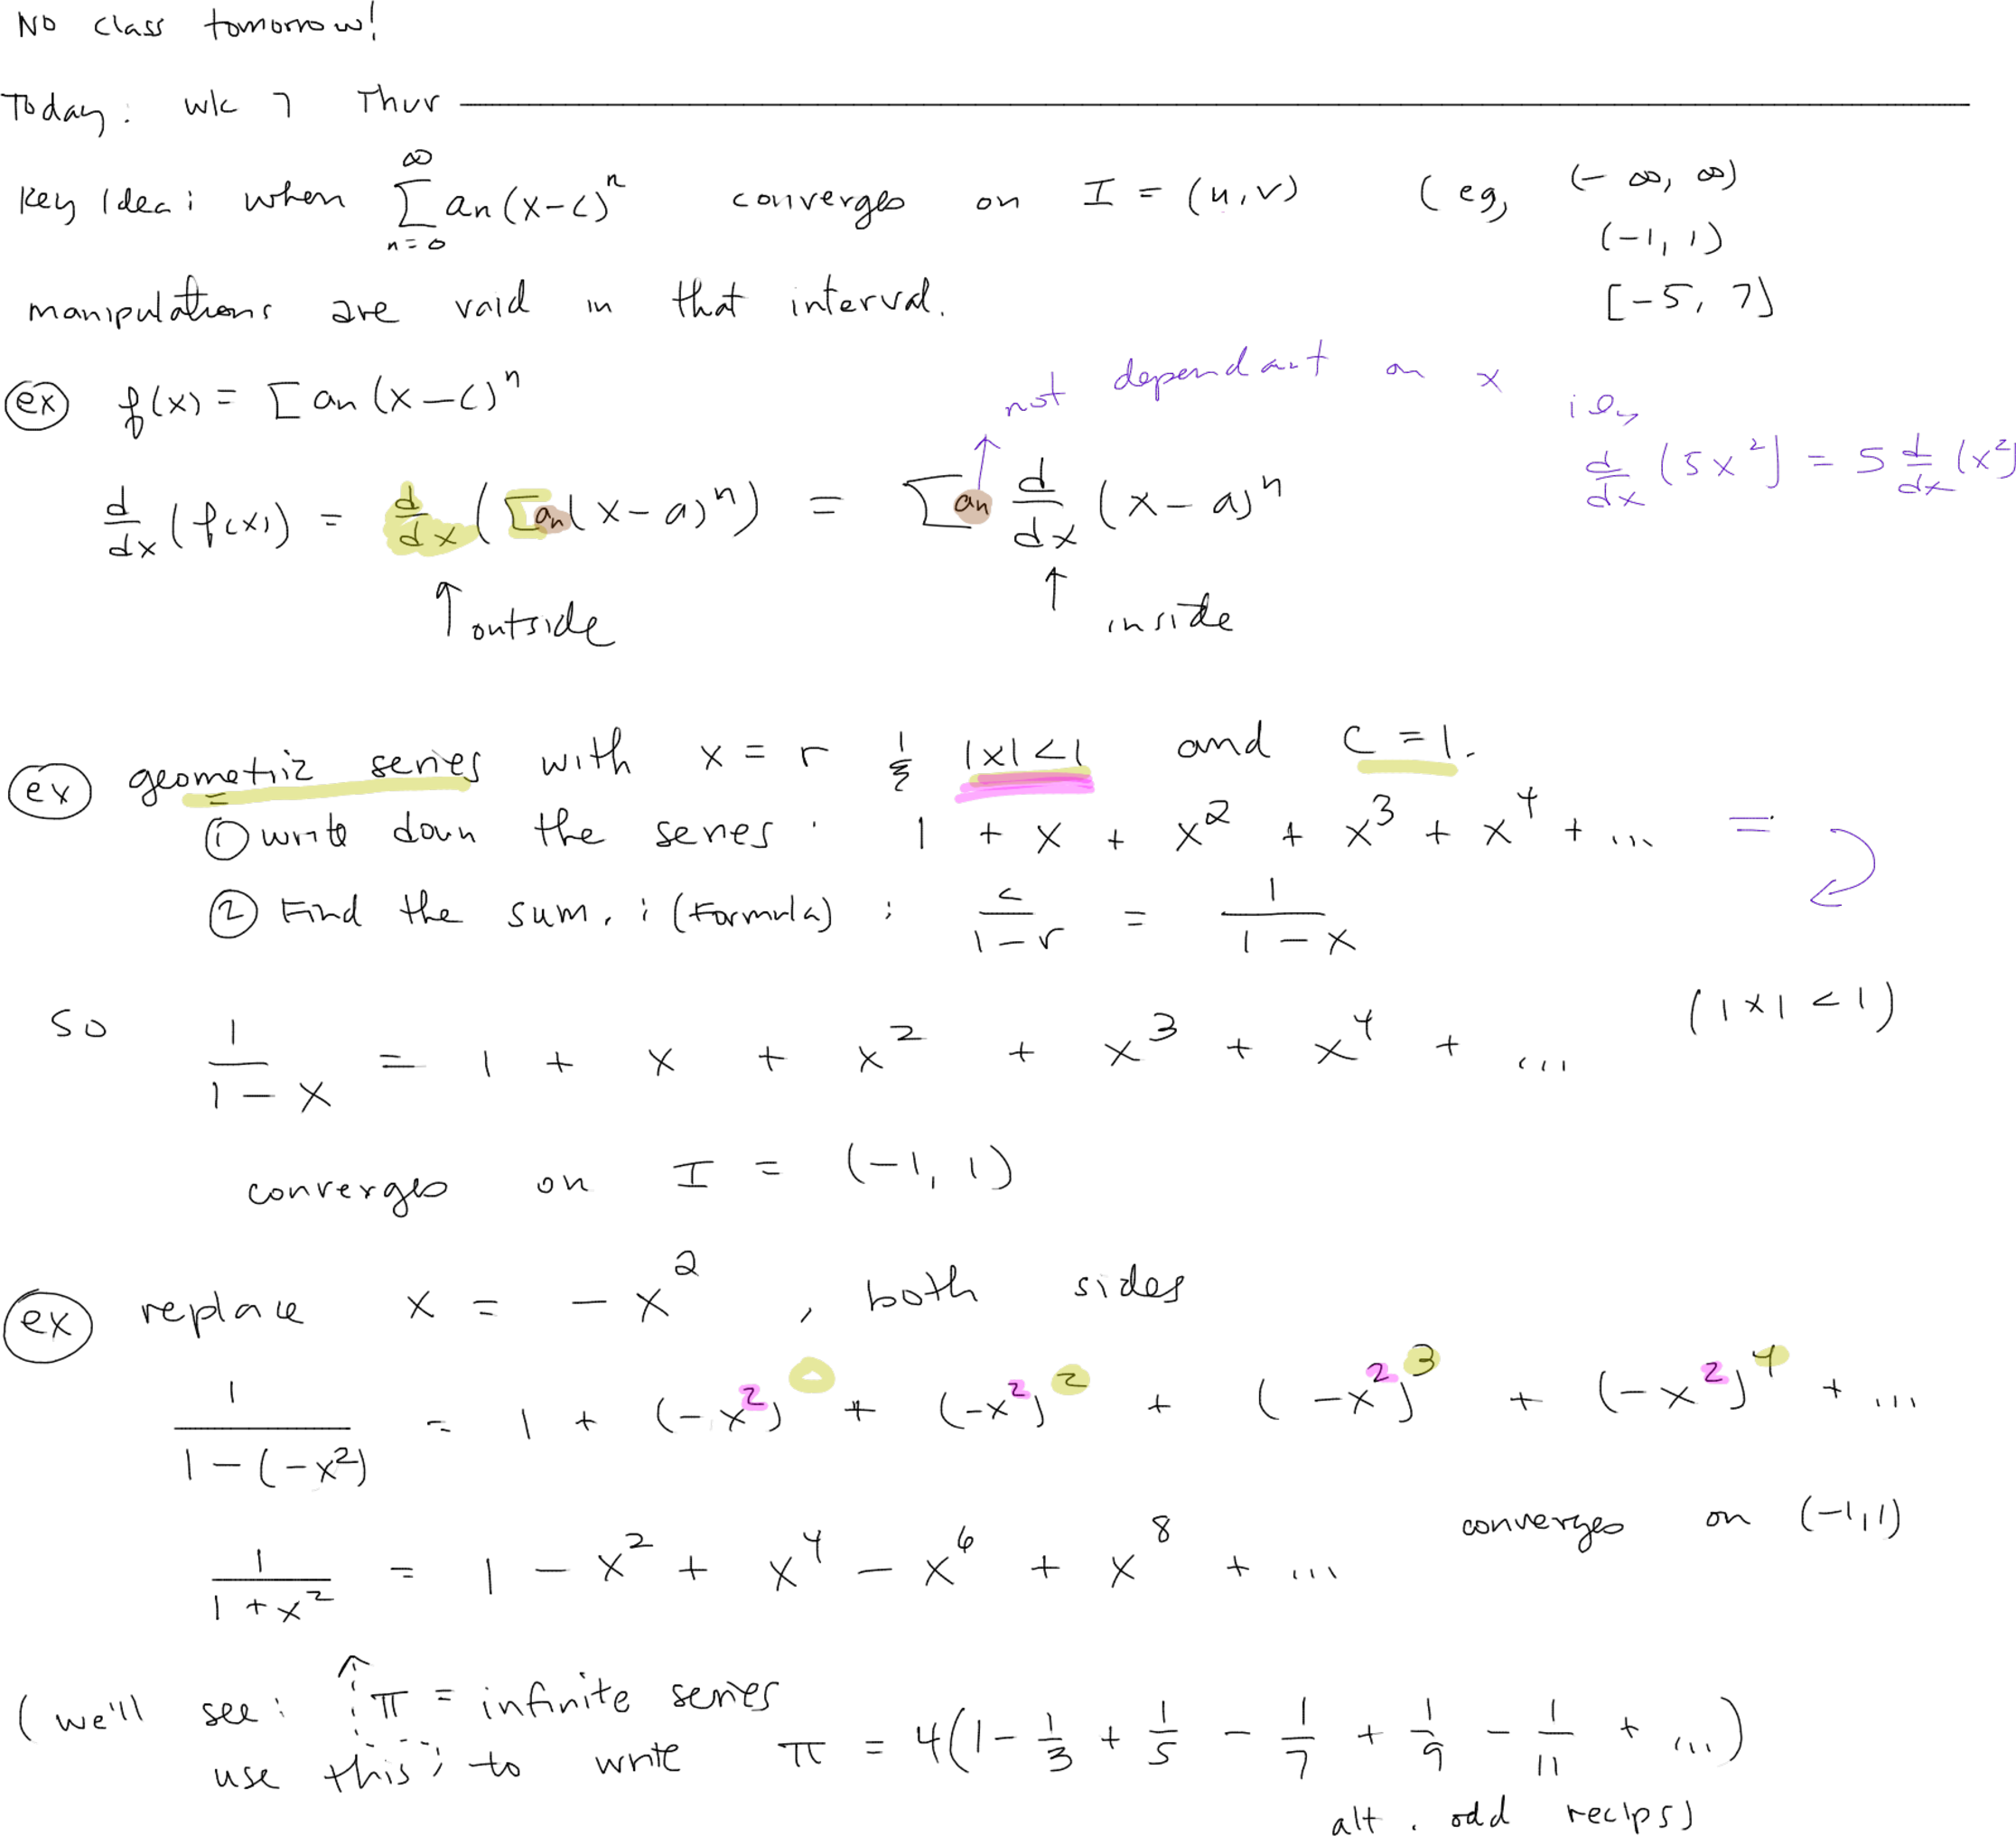 No class tomorrow!
Today: wk 7 Thur
Key Idea: when ∑_{n=0}^{∞} an(x-c)^n converges on I = (u,v) (eg, (-∞, ∞)
(-1, 1)
manipulations are vaid in that interval. [-5, 7]
ex f(x) = ∑ an (x-c)^n
not dependant on x i.e,
d/dx (5x^2) = 5 d/dx (x^2)
d/dx (f(x)) = d/dx (∑ an (x-a)^n) = ∑ an d/dx (x-a)^n
↑ outside ↑ inside
ex geometric series with x = r & |x|<1 and c = 1.
① write down the series: 1 + x + x^2 + x^3 + x^4 + ... =
② Find the sum. : (Formula) : c/(1-r) = 1/(1-x)
so 1/(1-x) = 1 + x + x^2 + x^3 + x^4 + ... (|x| < 1)
converges on I = (-1, 1)
ex replace x = -x^2, both sides
1/(1-(-x^2)) = 1 + (-x^2) + (-x^2)^2 + (-x^2)^3 + (-x^2)^4 + ...
1/(1+x^2) = 1 - x^2 + x^4 - x^6 + x^8 + ... converges on (-1,1)
(we'll see: π = infinite series
use this; to write π = 4(1 - 1/3 + 1/5 - 1/7 + 1/9 - 1/11 + ...)
alt. odd recips)